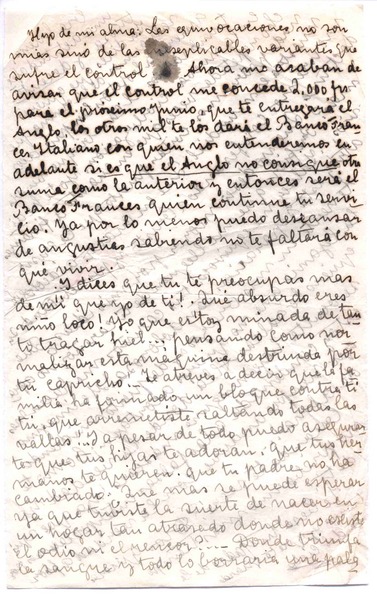 Hijo de mi alma: Las equivocaciones no son
más sinó de las inesplicables variantes que
sufre el control. Ahora me acaban de
avisar que el control me concede 2,000 fs
para el próximo Junio, que te entregará el
Anglo, los otros mil te los dará el Banco Fran-
ces Italiano con quien no entenderemos en
adelante si es que el Anglo no consigue otra
suma como la anterior y entonces será el
Banco Frances quien continue tu servi-
cio. Ya por lo menos puedo descansar
de angustias sabiendo no te faltará con
qué vivir.
¡I dices que tu te preocupas mas
de mi que yo de ti! Qué absurdo eres
niño loco! Yo que estoy minada de tan
to tragar hiel... pensando como nor-
malizar esta maquina destruida por
tu capricho!... Te atreves a decir que la fa
milia ha formado un bloque contra ti
tu, que arremetiste saltando todas las
vallas!!! I a pesar de todo puedo asegurar
te que tus hijas te adoran, que tus her-
manos te quieren, que tu padre no ha
cambiado. Qué mas se puede esperar
ya que tuviste la suerte de nacer en
un hogar tan atrasado donde no existe
el odio ni el rencor?... Donde triunfa
la sangre y todo lo borraria una pala